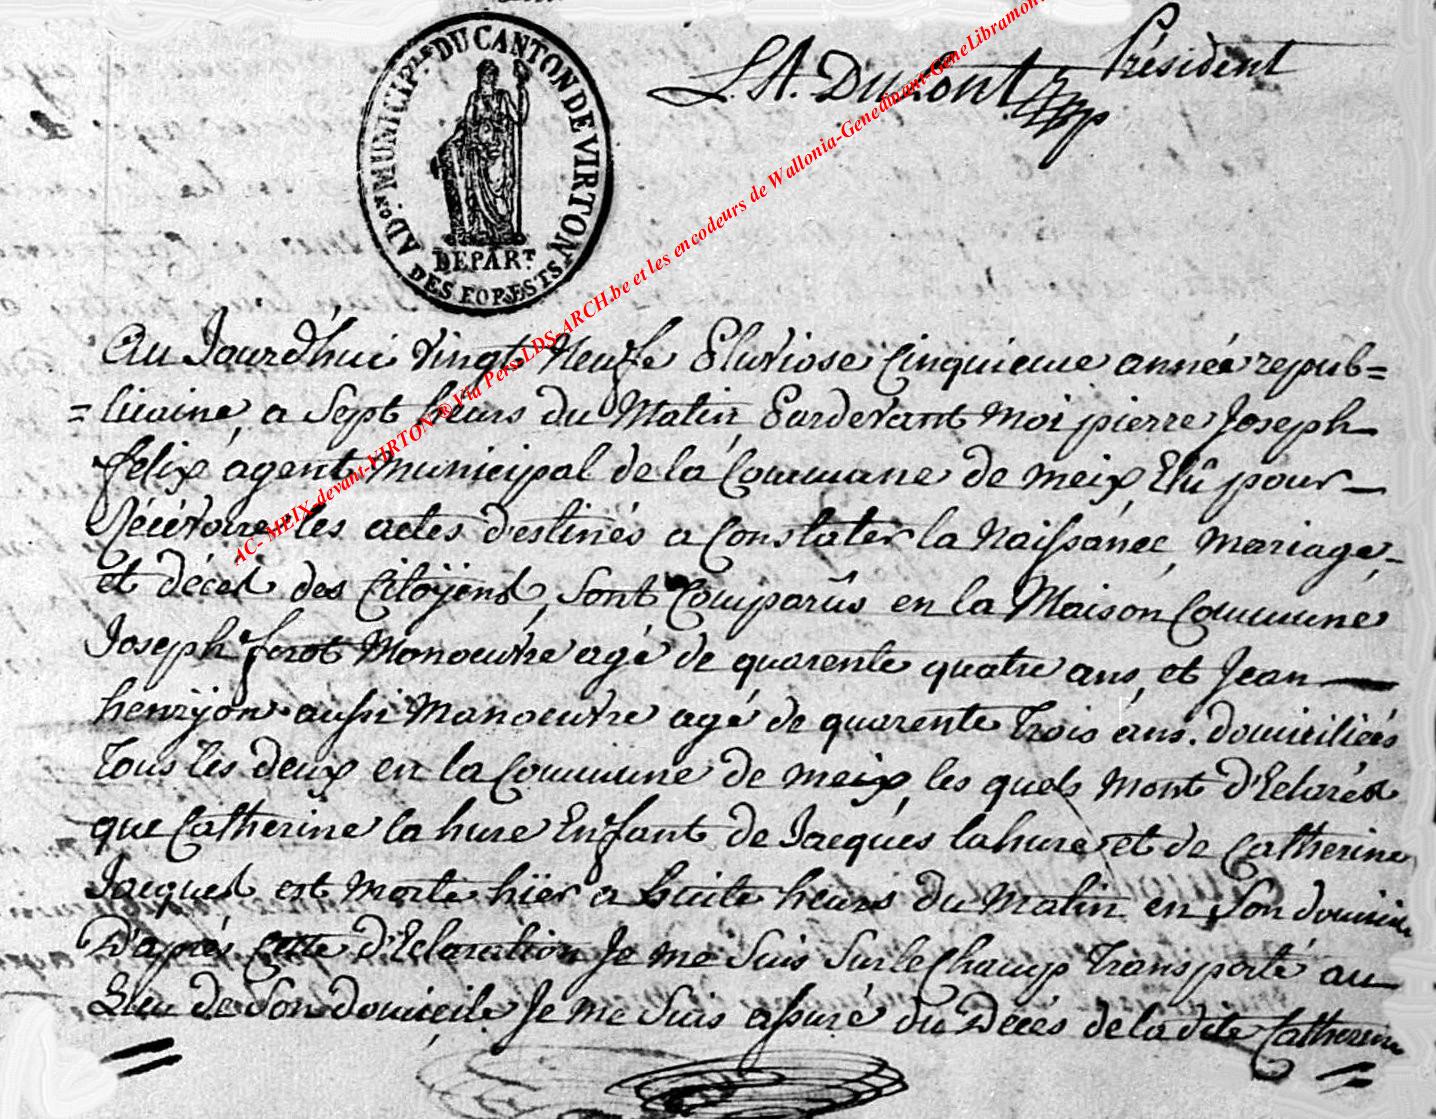 ADon. MUNICIPle. DU CANTON DE VIRTON
DEPART.
DES FORESTS
L.A. Dutont Président
AC- MEIX-devant-VIRTON ® Via Pers-LDS-ARCH.be et les encodeurs de Wallonia-Genedinant-GeneLibramont
Au Jourd'hui Vingt Neufe Pluviose Cinquieme année repub=
=licaine, a Sept heurs du Matin Pardevant Moi pierre Joseph
felix agent Municipal de la Commune de meix Elû pour
Récévoire les actes destinés a Constater la Naissance, mariage,
et décès des Citoÿens, sont Comparûs en la Maison Commune
Joseph ferot Manoeuvre agé de quarente quatre ans, et Jean
henrÿon aussi Manoeuvre agé de quarente Trois ans. domiciliés
Tous les deux en la Commune de meix, les quels Mont d'Eclarés
que Catherine Lahure Enfant de Jacques Lahure et de Catherine
Jacques est Morte hier a huite heurs du Matin en Son domici
D'après Cette d'Eclaration Je me Suis Surle Champ Transporté au
Lieu de Son domicile, Je me Suis assuré du Décés de la dite Catherine